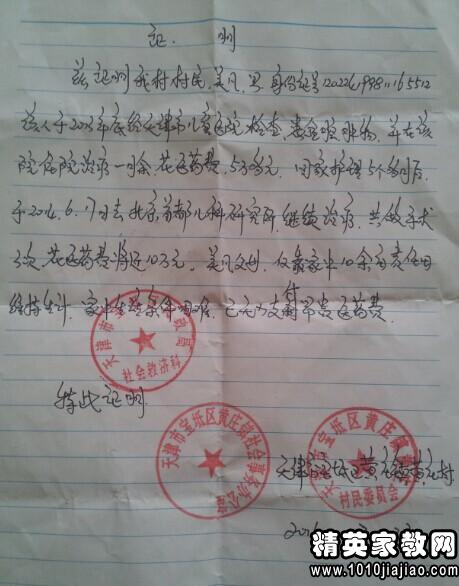 证 明
兹证明我村村民,姜凡,男 身份证号120224199811165512
该人于2013年底经天津市儿童医院检查,患 并在该
院住院治疗一月余,花医药费,5万多元,回家护理5个多月后,
于2014.6.17日去北京首都儿科研究所,继续治疗,共做手术
3次,花医药费将近10万元,姜凡父母,仅靠家中10余亩责任田
维持生计,家中生活条件困难,已无力支付昂贵医药费.
特此证明
天津市
社会救济科
天津市宝坻区黄庄镇社会事务办公室
天津市宝坻区黄庄镇
村民委员会
天津市宝坻区黄庄镇 村
精英家教网
www.1010jiajiao.com